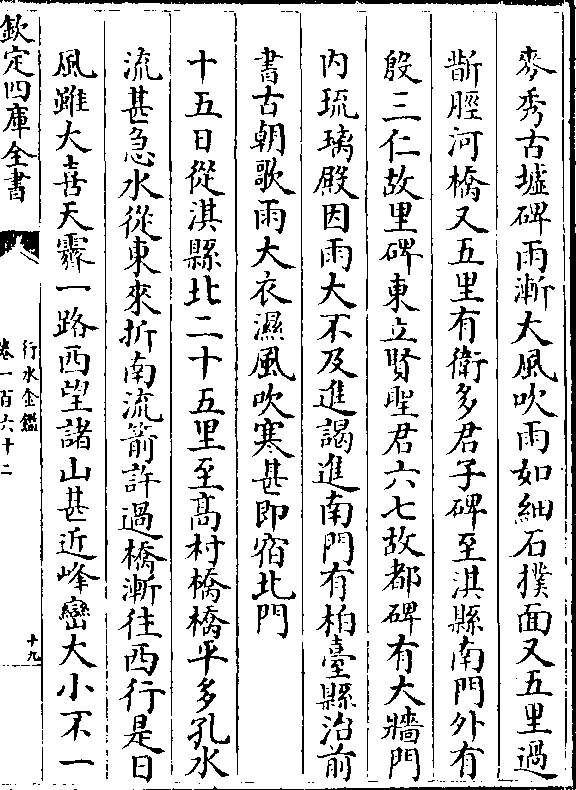 麥秀古墟碑雨漸大風吹雨如細石撲面又五里過
斮脛河橋又五里有衛多君子碑至淇縣南門外有
殷三仁故里碑東立賢聖君六七故都碑有大牆門
内琉璃殿因雨大不及進謁進南門有柏臺縣治前
書古朝歌雨大衣濕風吹寒甚即宿北門
十五日從淇縣北二十五里至髙村橋橋平多孔水
流甚急水從東來折南流箭許過橋漸往西行是日
風雖大喜天霽一路西望諸山甚近峰巒大小不一
欽定四庫全書
行水金鑑
卷一百六十二
十九